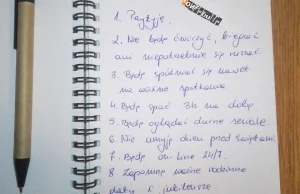 1. Przytyję.
2. Nie będę ćwiczyć, biegać
ani niepotrzebnie się ruszać.
3. Będę spóźniać się nawet
na ważne spotkania
4. Będę spać 3h na dobę
5. Będę oglądać durne seriale
6. Nie umyję okien przed świętami
7. Będę on-line 24/7.
8. Zapomnę ważne rodzinne
daty i jubileusze.